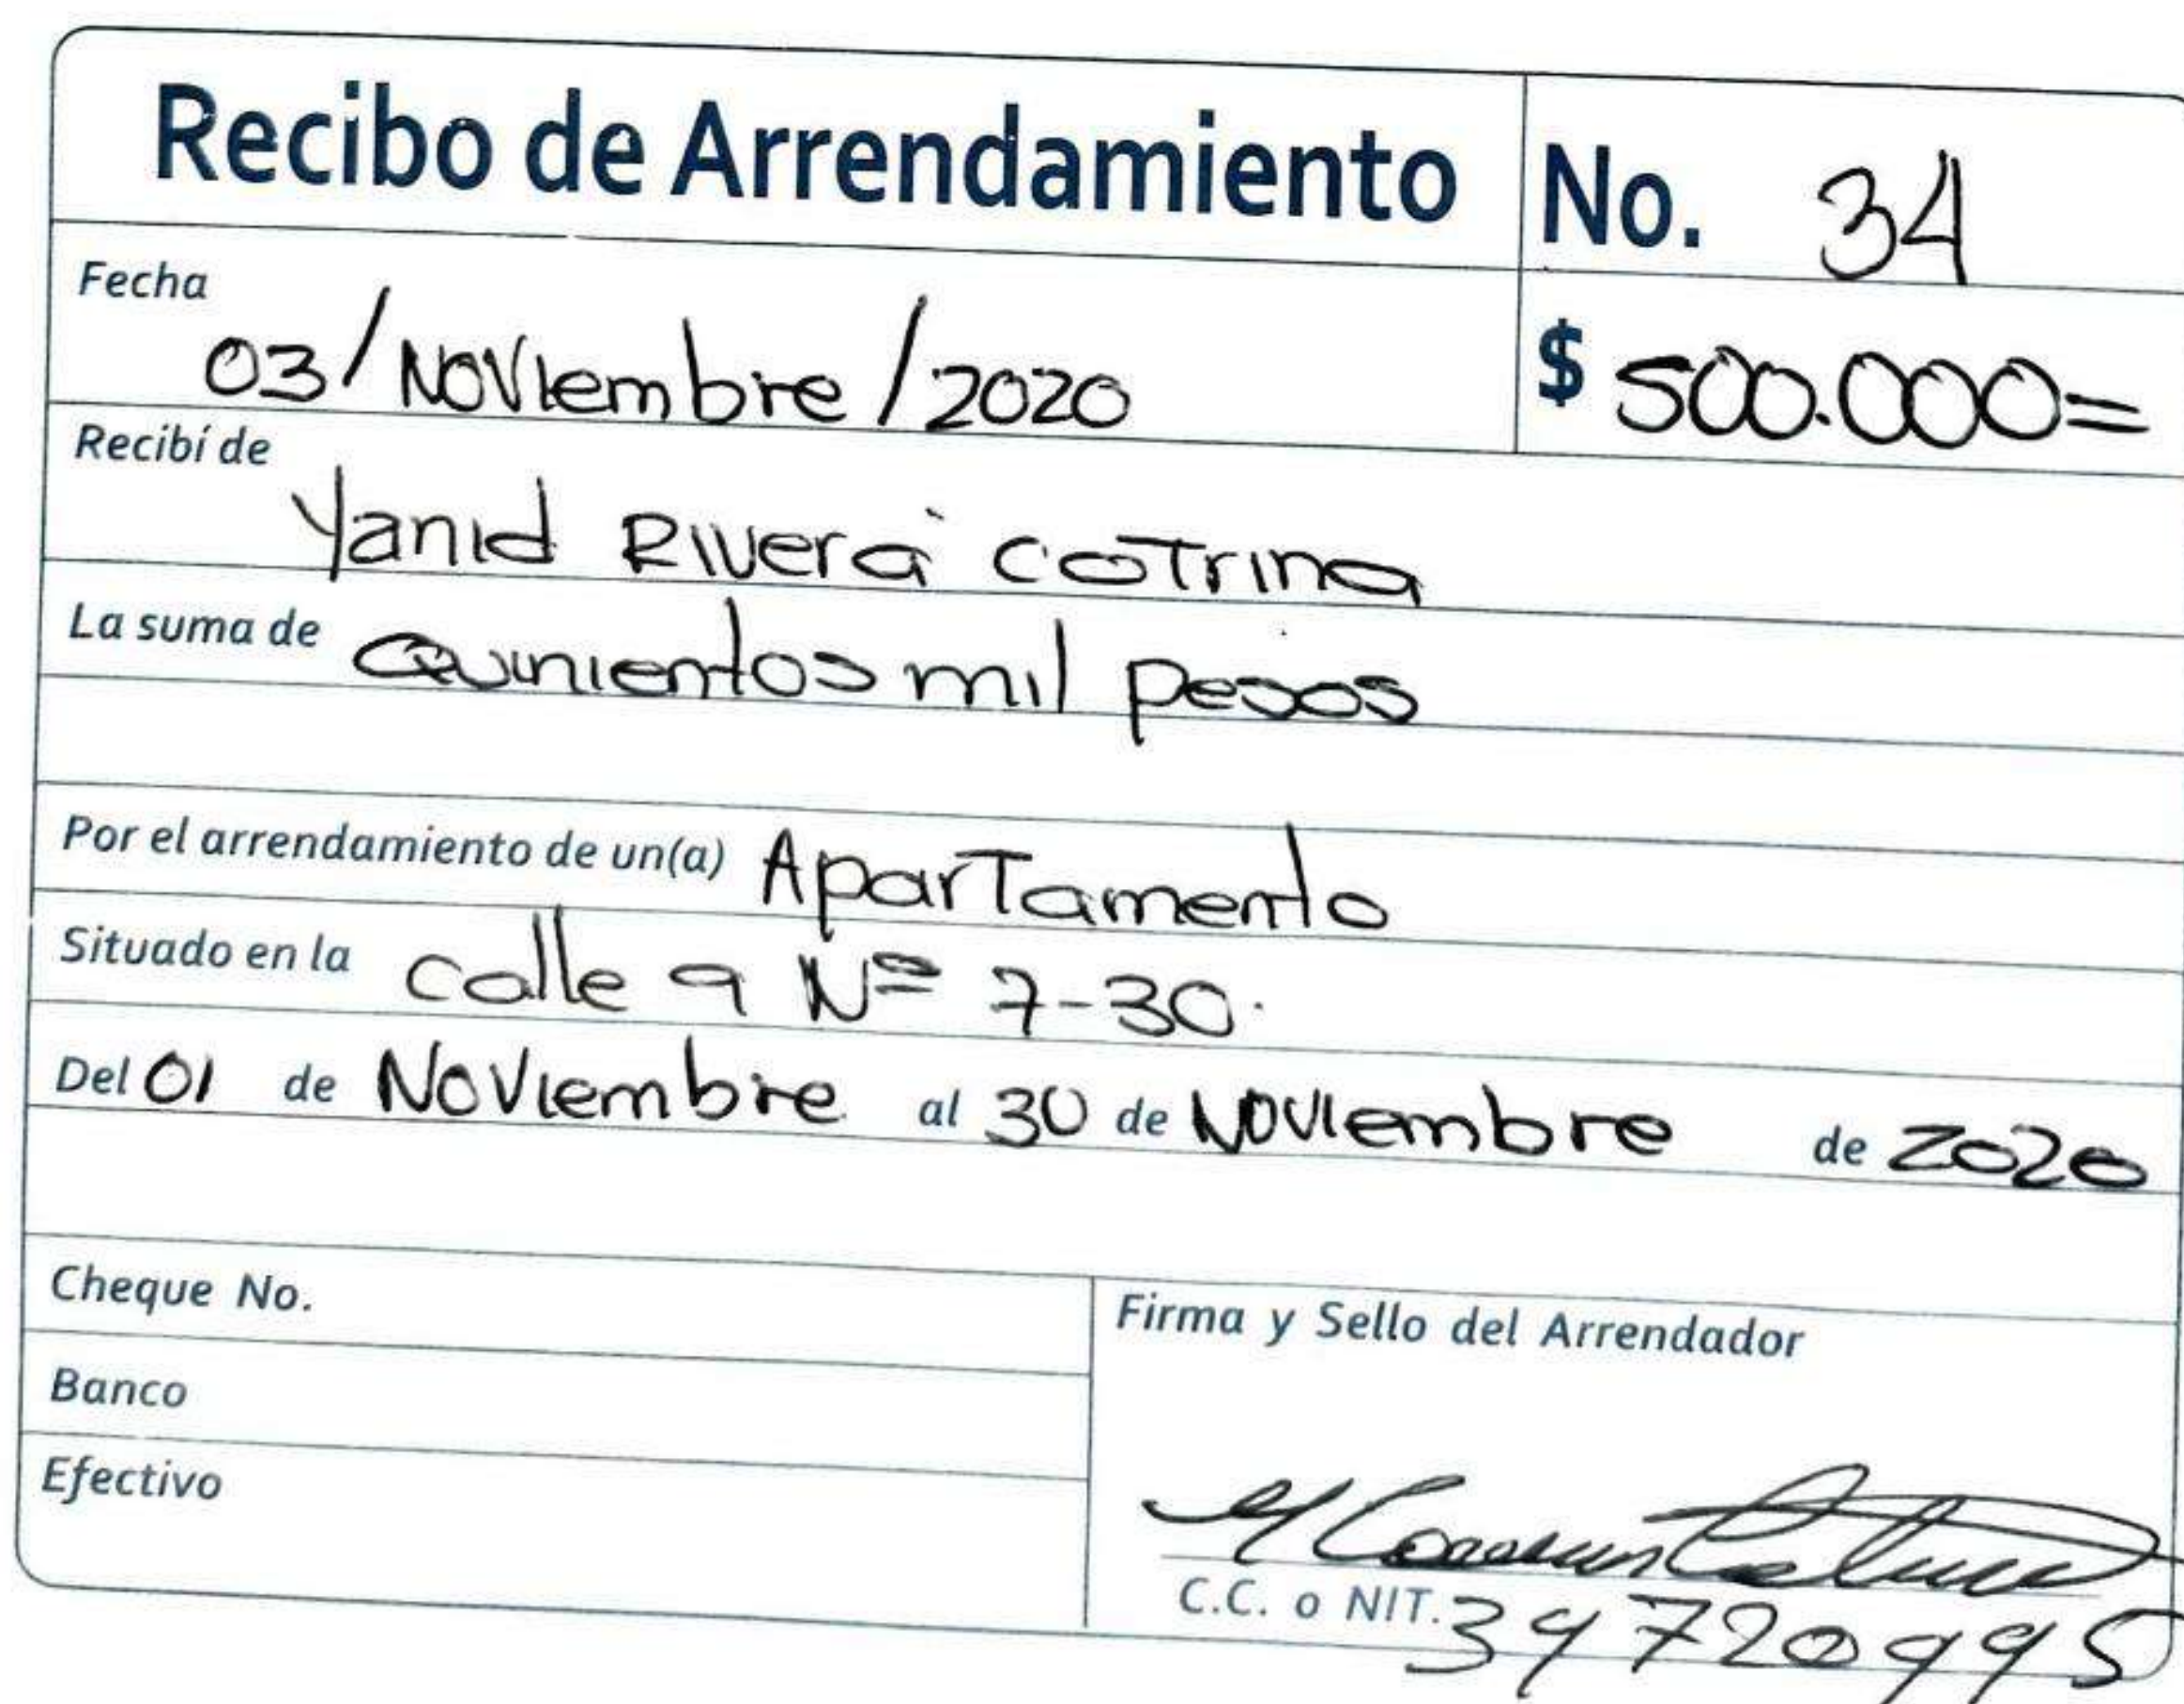 Recibo de Arrendamiento No. 34
Fecha 03/Noviembre/2020 $ 500.000=
Recibí de Yanid Rivera Cotrina
La suma de Quinientos mil pesos
Por el arrendamiento de un(a) Apartamento
Situado en la calle 9 Nº 7-30.
Del 01 de Noviembre al 30 de Noviembre de 2020
Cheque No.
Firma y Sello del Arrendador
Banco
Efectivo
C.C. o NIT. 39720995